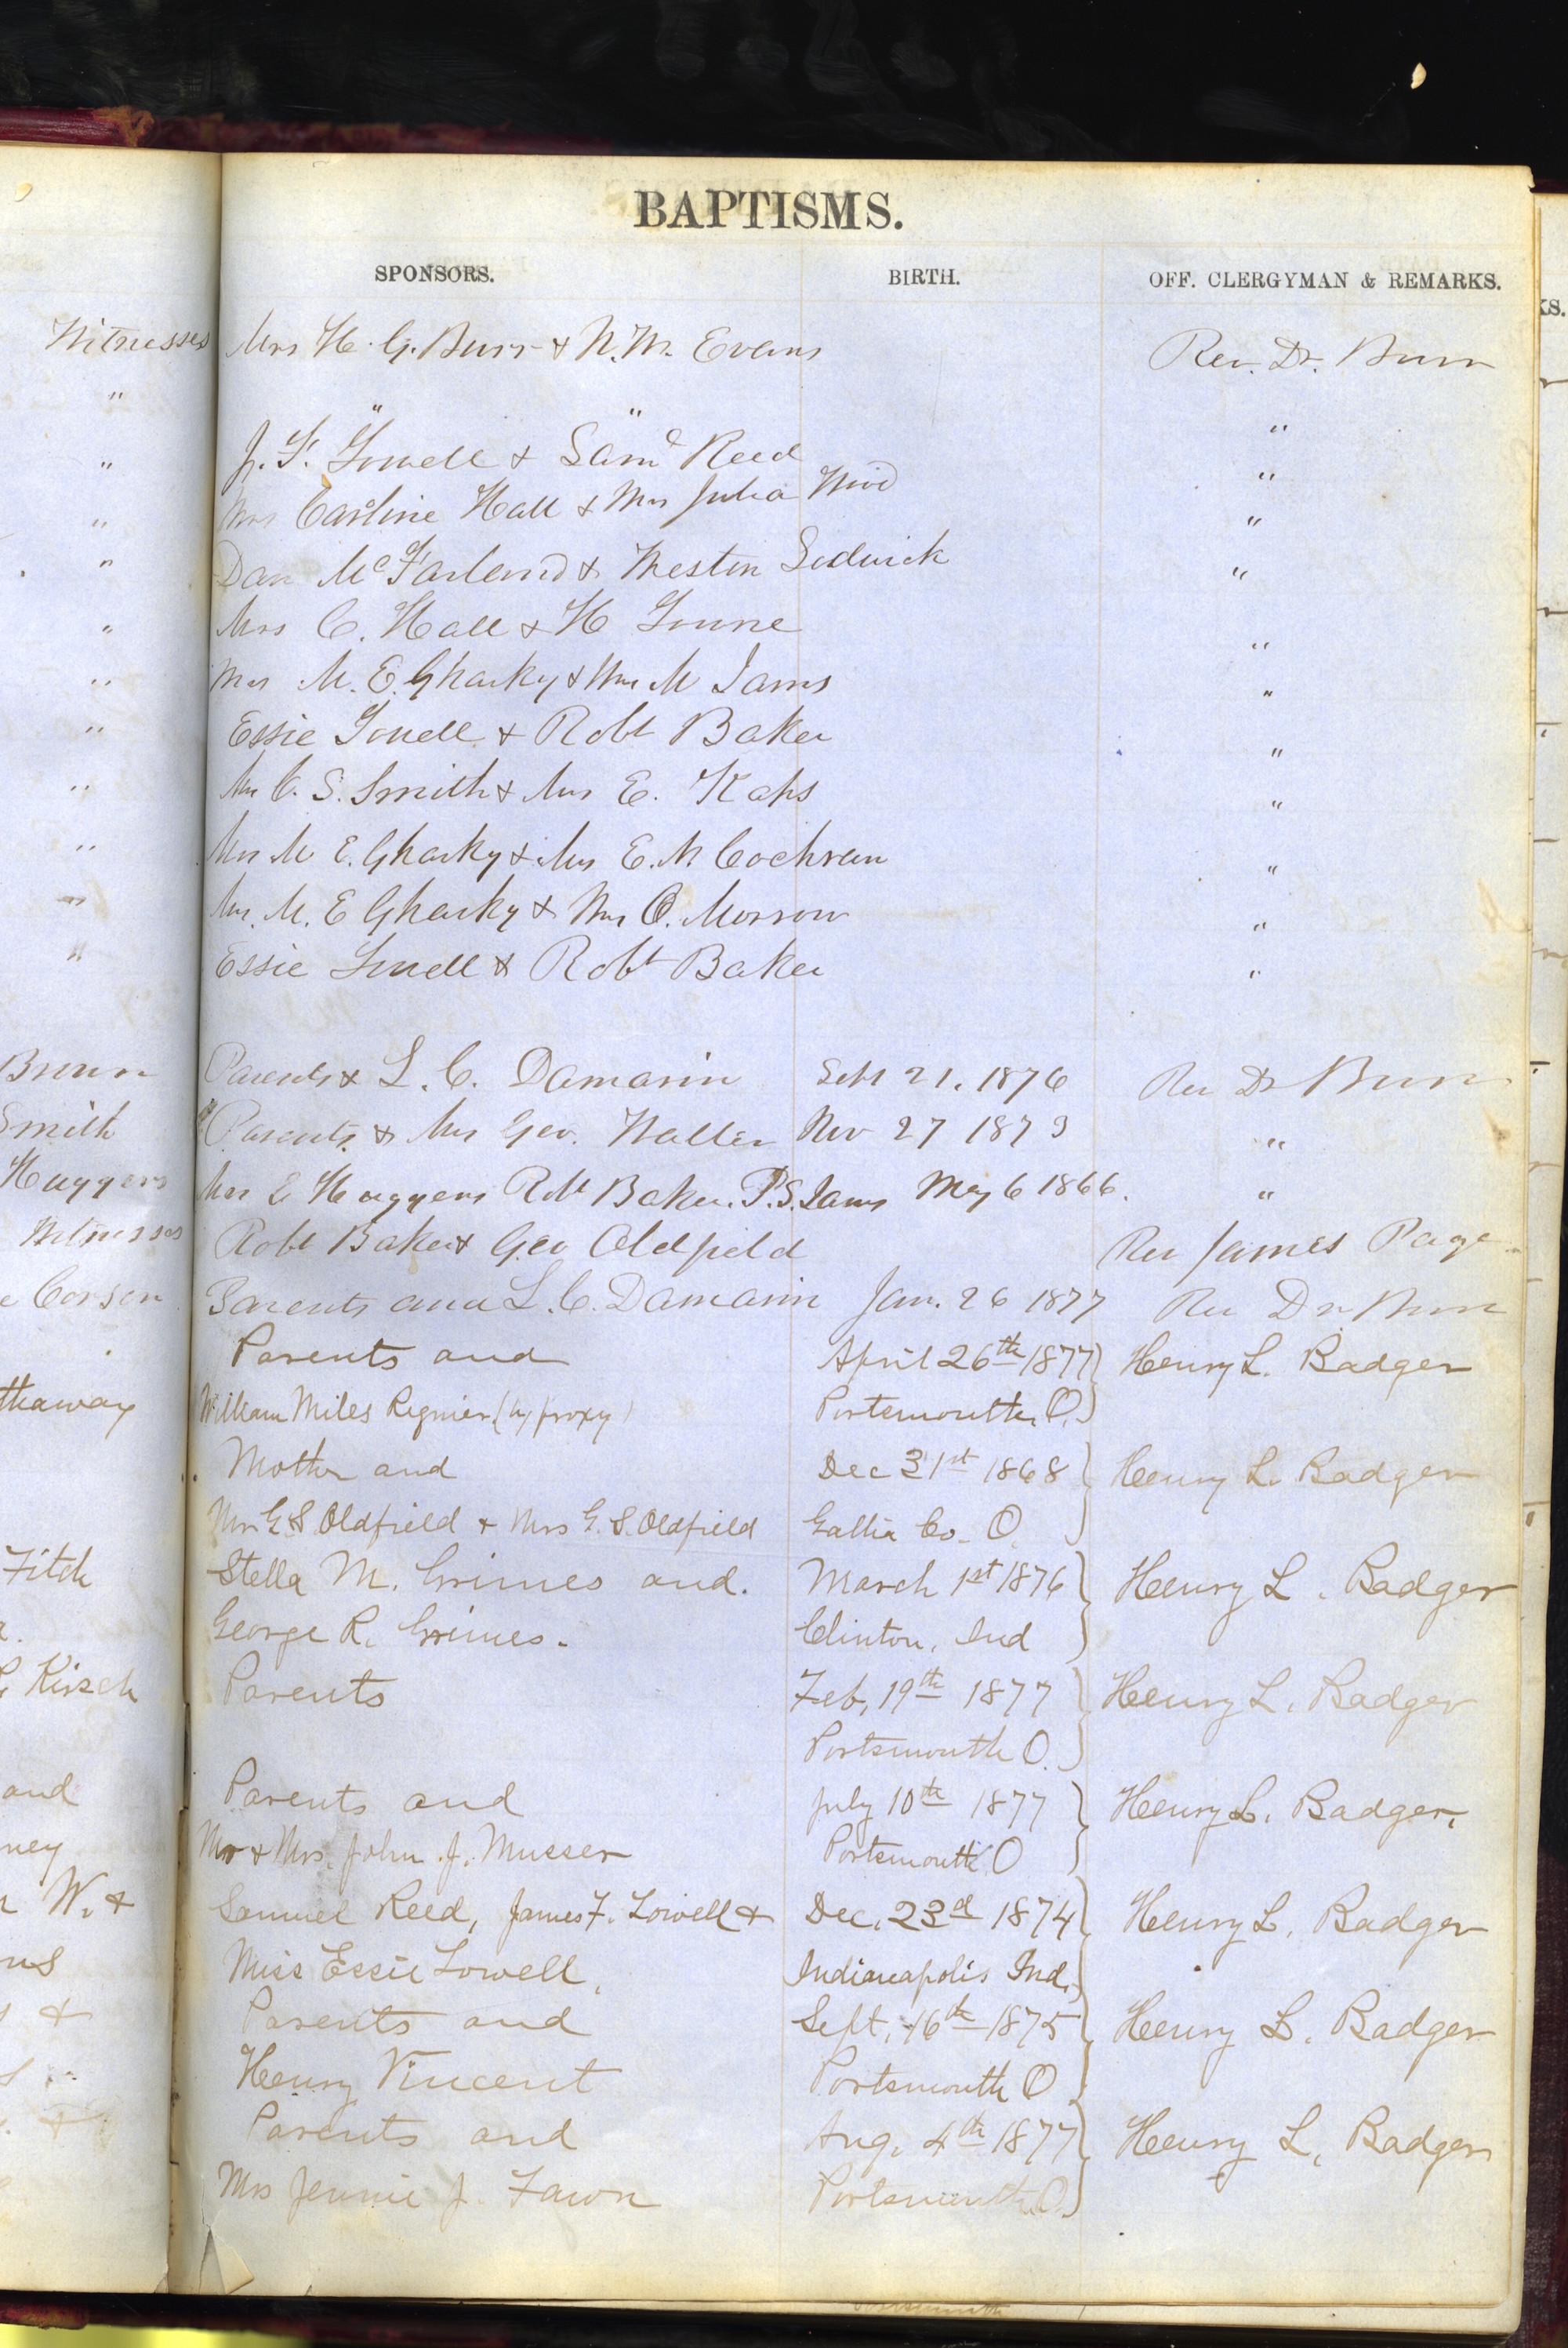 BAPTISMS.
SPONSORS. BIRTH. OFF. CLERGYMAN & REMARKS.
KS.
Witnesses Mrs H. G. Burr & N. W. Evans Rev. Dr. Burr
" " " "
" J. F. Lowell & Saml Reed "
" Mrs Carline Hall & Mrs Julia "
" Dan McFarland & Weston Sedwick "
" Mrs C. Hall & H "
" Mrs M. E. Gharky & Mrs M Jams "
" Essie Lowell & Robt Baker "
" Mrs C. S. Smith & Mrs E. Kahs "
" Mrs M E. Gharky & Mrs E. M. Cochran "
" Mrs. M. E Gharky & Mrs O. Morrow "
" Essie Lowell & Robt Baker "
Parents & L. C. Damarin Sept 21. 1876 Rev Dr Burr
Smith Parents & Mrs Geo. Waller Nov 27 1873 "
Huggens Mrs E Huggens Robt Baker. P. S. Jams May 6 1866. "
Witnesses Robt Baker & Geo Oldfield Rev James Page
Corson Parents and L. C. Damarin Jan. 26 1877 Rev Dr Burr
Parents and April 26th 1877 Henry L. Badger
thaway William Miles Regnier (by proxy) Portsmouth, O.
Mother and Dec 31st 1868 Henry L. Badger
Mr G. S Oldfield & Mrs G. S. Oldfield Gallia Co. O.
Fitch Stella M. Grimes and. March 1st 1876 Henry L. Badger
George R. Grimes. Clinton, Ind
Kirsch Parents Feb, 19th 1877 Henry L. Badger
Portsmouth O.
and Parents and July 10th 1877 Henry L. Badger,
ney Mr & Mrs. John J. Musser Portsmouth O
W. & Samuel Reed, James F. Lowell & Dec. 23d 1874 Henry L. Badger
ns Miss Essie Lowell, Indianapolis Ind.
& Parents and Sept. 16th 1875 Henry L. Badger
Henry Vincent Portsmouth O
Parents and Aug. 4th 1877 Henry L. Badger
Mrs Jennie J. Fawn Portsmouth O.